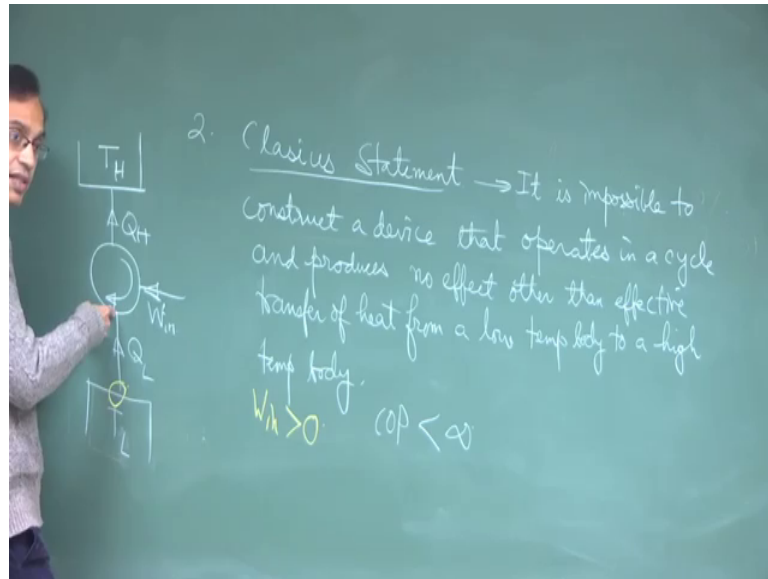 2. Clasius Statement → It is impossible to
construct a device that operates in a cycle
and produces no effect other than effective
transfer of heat from a low temp body to a high
temp body.
Win > 0 COP < ∞
TH
QH
Win
QL
TL